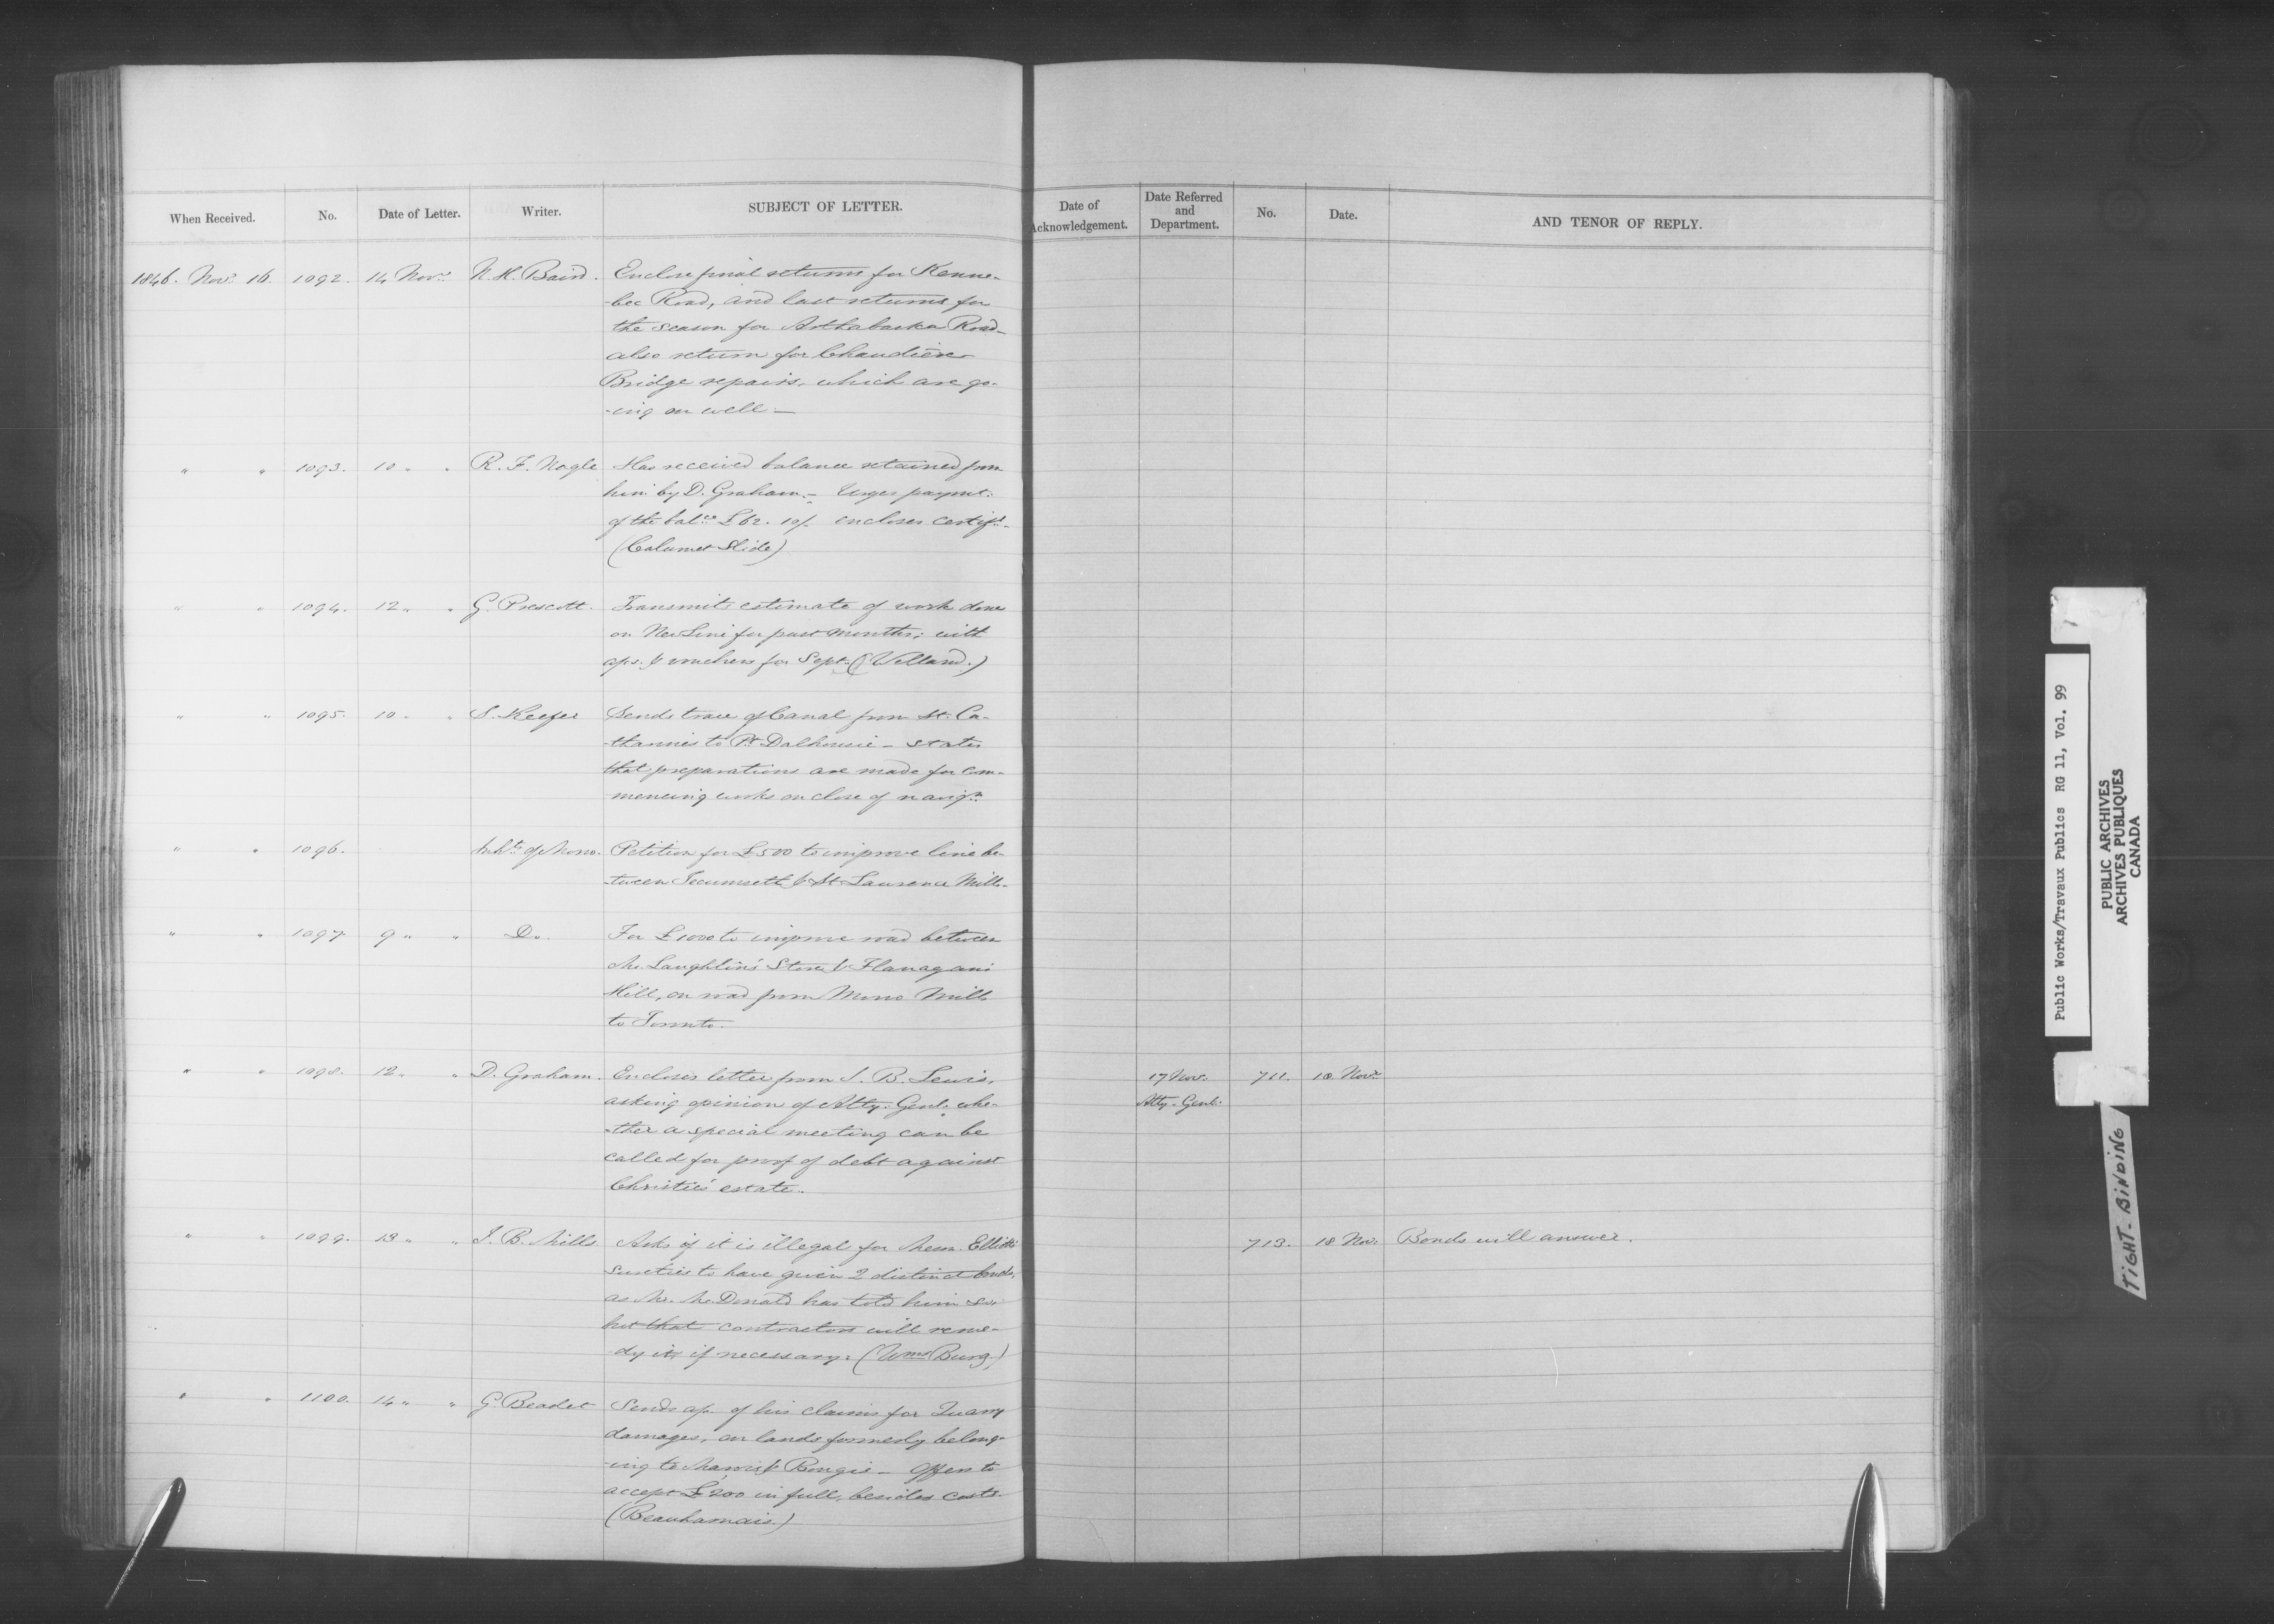 When Received. No. Date of Letter. Writer. SUBJECT OF LETTER. Date of Acknowledgement. Date Referred and Department. No. Date. AND TENOR OF REPLY.
1846. Novr. 16. 1092. 14 Novr. N. H. Baird. Enclose final returns for Kenne-
-bec Road, and last returns for
the season for Arthabaska Road-
also return for Chaudière
Bridge repairs, which are go-
-ing on well.—
" " 1093. 10 " " R. F. Nagle Has received balance retained from
him by D. Graham.— Urges paymt.
of the balce £62. 10/. encloses certift.
(Calumet Slide)
" " 1094. 12 " " G. Prescott. Transmits estimate of work done
on New Line for past months; with
aps. & vouchers for Sept. (Welland.)
" " 1095. 10 " " S. Keefer Sends trace of Canal from St. Ca-
-tharines to Pt. Dalhousie — states
that preparations are made for com-
-mencing works on close of navign.
" " 1096. Inhts. of Mono. Petition for £500 to improve line be-
-tween Tecumseth & St. Lawrence Mills.
" " 1097. 9 " " Do. For £1000 to improve road between
McLaughlin's Store & Flanagan's
Hill, on road from Mono Mills
to Toronto.
" " 1098. 12 " " D. Graham. Encloses letter from J. B. Lewis, 17 Nov. 711. 18 Novr.
asking opinion of Atty. Genl. whe- Atty-Genl.
-ther a special meeting can be
called for proof of debt against
Christie's estate.
" " 1099. 13 " " J. B. Mills. Asks if it is illegal for Messrs. Elliotts 713. 18 Nov. Bonds will answer.
sureties to have given 2 distinct bonds,
as Mr. McDonald has told him so
but that contractors will reme-
-dy it, if necessary. (Wms Burg)
" " 1100. 14 " " G. Beadet Sends ap. of his claims for Quarry
damages, on lands formerly belong-
-ing to & Bougie — Offers to
accept £200 in full, besides costs.
(Beauharnais.)
Public Works/Travaux Publics RG 11, Vol. 99
PUBLIC ARCHIVES
ARCHIVES PUBLIQUES
CANADA
TIGHT-BINDING